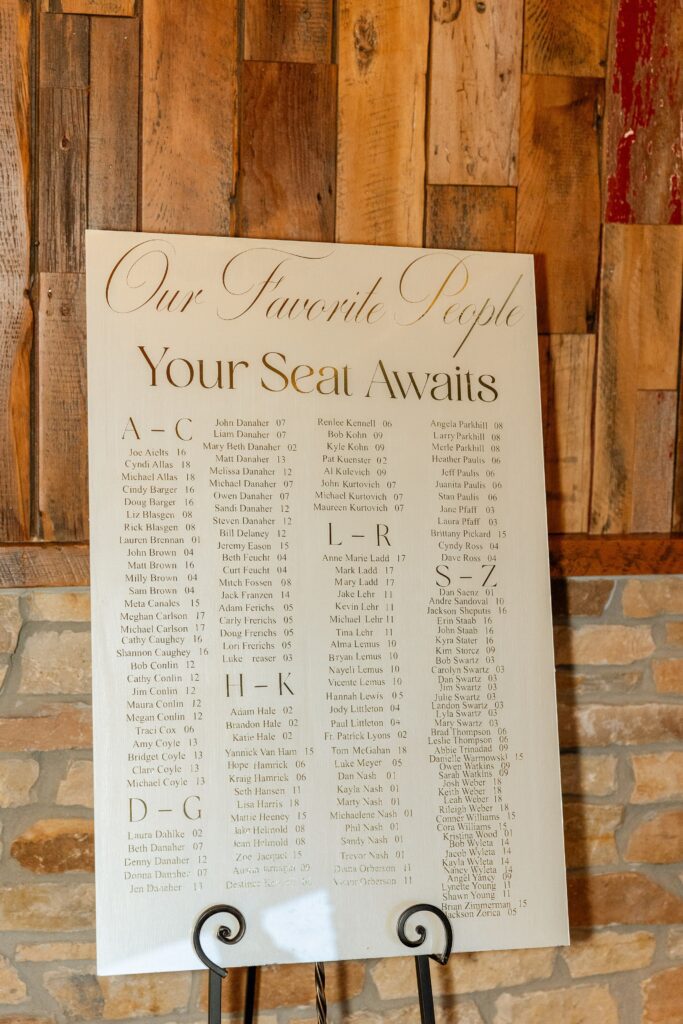 Our Favorite People
Your Seat Awaits
A – C
Joe Aielts 16
Cyndi Allas 18
Michael Allas 18
Cindy Barger 16
Doug Barger 16
Liz Blasgen 08
Rick Blasgen 08
Lauren Brennan 01
John Brown 04
Matt Brown 16
Milly Brown 04
Sam Brown 04
Meta Canales 15
Meghan Carlson 17
Michael Carlson 17
Cathy Caughey 16
Shannon Caughey 16
Bob Conlin 12
Cathy Conlin 12
Jim Conlin 12
Maura Conlin 12
Megan Conlin 12
Traci Cox 06
Amy Coyle 13
Bridget Coyle 13
Clare Coyle 13
Michael Coyle 13
D – G
Laura Dahlke 02
Beth Danaher 07
Denny Danaher 12
Donna Danaher 13
Jen Danaher 13
John Danaher 07
Liam Danaher 07
Mary Beth Danaher 02
Matt Danaher 13
Melissa Danaher 12
Michael Danaher 07
Owen Danaher 07
Sandi Danaher 12
Steven Danaher 12
Bill Delaney 12
Jeremy Eason 15
Beth Feucht 04
Curt Feucht 04
Mitch Fossen 08
Jack Franzen 14
Adam Ferichs 05
Carly Frerichs 05
Doug Frerichs 05
Lori Frerichs 05
Luke reaser 03
H – K
Adam Hale 02
Brandon Hale 02
Katie Hale 02
Yannick Van Ham 15
Hope Hamrick 06
Kraig Hamrick 06
Seth Hansen 11
Lisa Harris 18
Mattie Heeney 15
Jake Helmold 08
Jean Helmold 08
Zoe Jacquel 15
Austin 09
Destinee
Renlee Kennell 06
Bob Kohn 09
Kyle Kohn 09
Pat Kuenster 02
Al Kulevich 09
John Kurtovich 07
Michael Kurtovich 07
Maureen Kurtovich 07
L – R
Anne Marie Ladd 17
Mark Ladd 17
Mary Ladd 17
Jake Lehr 11
Kevin Lehr 11
Michael Lehr 11
Tina Lehr 11
Alma Lemus 10
Bryan Lemus 10
Nayeli Lemus 10
Vicente Lemus 10
Hannah Lewis 05
Jody Littleton 04
Paul Littleton 04
Fr. Patrick Lyons 02
Tom McGahan 18
Luke Meyer 05
Dan Nash 01
Kayla Nash 01
Marty Nash 01
Michaelene Nash 01
Phil Nash 01
Sandy Nash 01
Trevor Nash 01
Diana Orberson 11
Orberson 11
Angela Parkhill 08
Larry Parkhill 08
Merle Parkhill 08
Heather Paulis 06
Jeff Paulis 06
Juanita Paulis 06
Stan Paulis 06
Jane Pfaff 03
Laura Pfaff 03
Brittany Pickard 15
Cyndy Ross 04
Dave Ross 04
S – Z
Dan Saenz 01
Andre Sandoval 10
Jackson Sheputis 16
Erin Staab 16
John Staab 16
Kyra Stater 16
Kim Storcz 09
Bob Swartz 03
Carolyn Swartz 03
Dan Swartz 03
Jim Swartz 03
Julie Swartz 03
Landon Swartz 03
Lyla Swartz 03
Mary Swartz 03
Brad Thompson 06
Leslie Thompson 06
Abbie Trinadad 09
Danielle Warmowski 15
Owen Watkins 09
Sarah Watkins 09
Josh Weber 18
Keith Weber 18
Leah Weber 18
Rileigh Weber 18
Conner Williams 15
Cora Williams 15
Kristing Wood 01
Bob Wyleta 14
Jacob Wyleta 14
Kayla Wyleta 14
Nancy Wyleta 14
Angel Yancy 09
Lynette Young 11
Shawn Young 11
Brian Zimmerman 15
Jackson Zorica 05